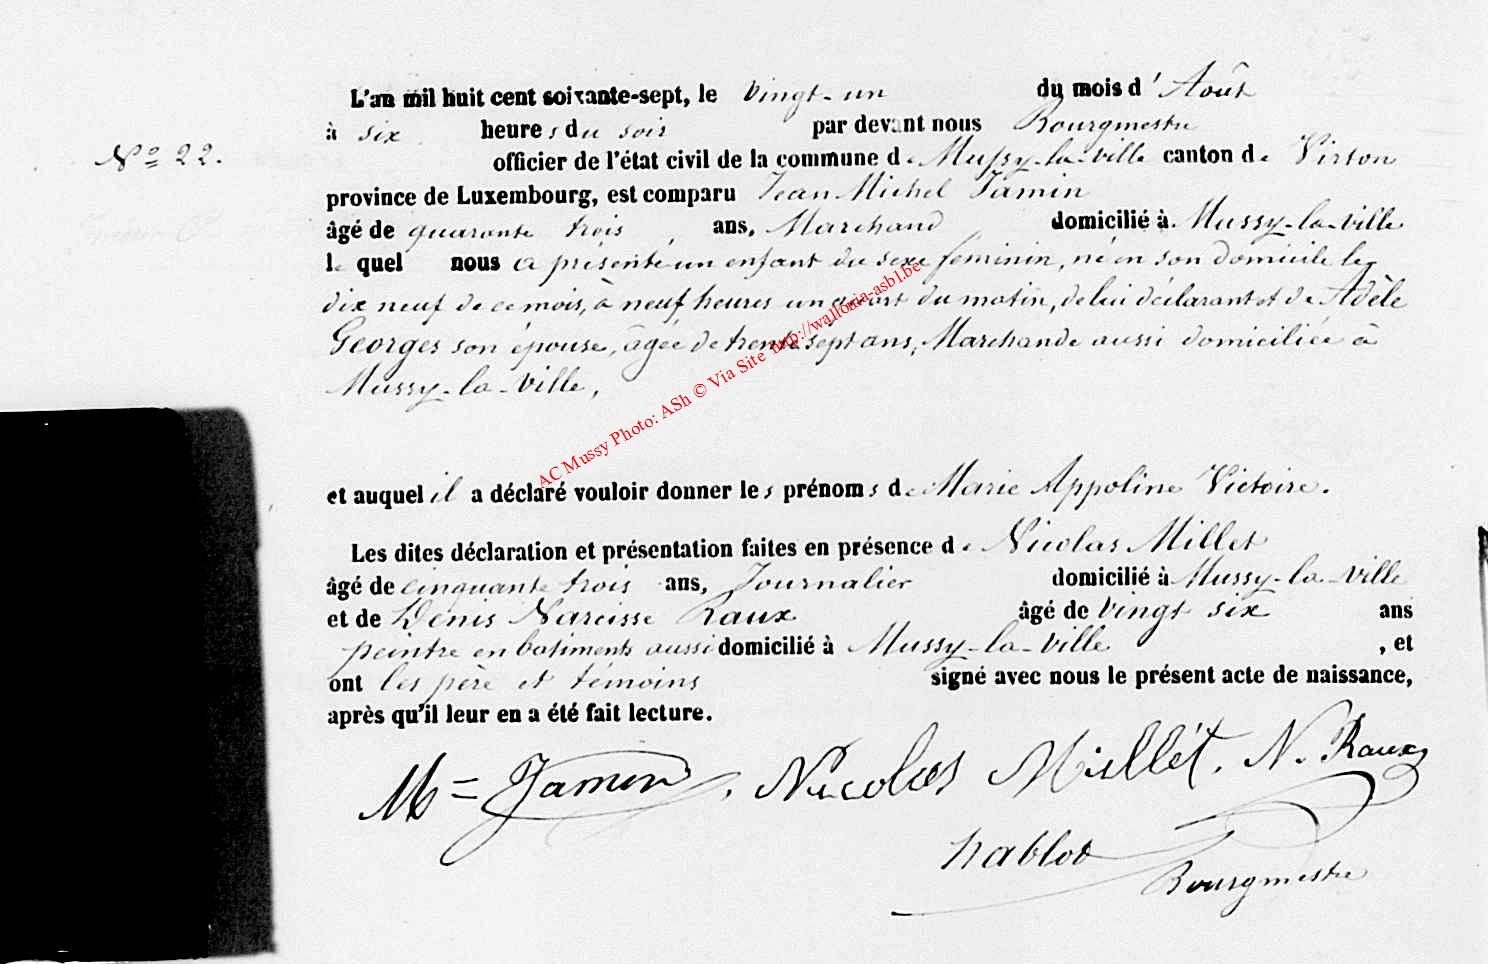 L'an mil huit cent soixante-sept, le Vingt-un du mois d' Août
à six heures du soir par devant nous Bourgmestre
N° 22.
officier de l'état civil de la commune de Mussy-la-ville canton de Virton
province de Luxembourg, est comparu Jean Michel Jamin
âgé de quarante trois ans, Marchand domicilié à Mussy-la-ville
lequel nous a présenté un enfant du sexe féminin, né en son domicile le
dix neuf de ce mois, à neuf heures un quart du matin, de lui déclarant et de Adèle
Georges son épouse, âgée de trente sept ans, Marchande aussi domiciliée à
Mussy-la-Ville,
AC Mussy Photo: ASh © Via Site http://wallonia-asbl.be
et auquel il a déclaré vouloir donner les prénoms de Marie Appoline Victoire.
Les dites déclaration et présentation faites en présence de Nicolas Millet
âgé de cinquante trois ans, Journalier domicilié à Mussy-la-Ville
et de Denis Narcisse Raux âgé de Vingt six ans
peintre en batiments aussi domicilié à Mussy-la-Ville , et
ont les père et témoins signé avec nous le présent acte de naissance,
après qu'il leur en a été fait lecture.
M = Jamin, Nicolas Millét, N. Raux
hablot
Bourgmestre